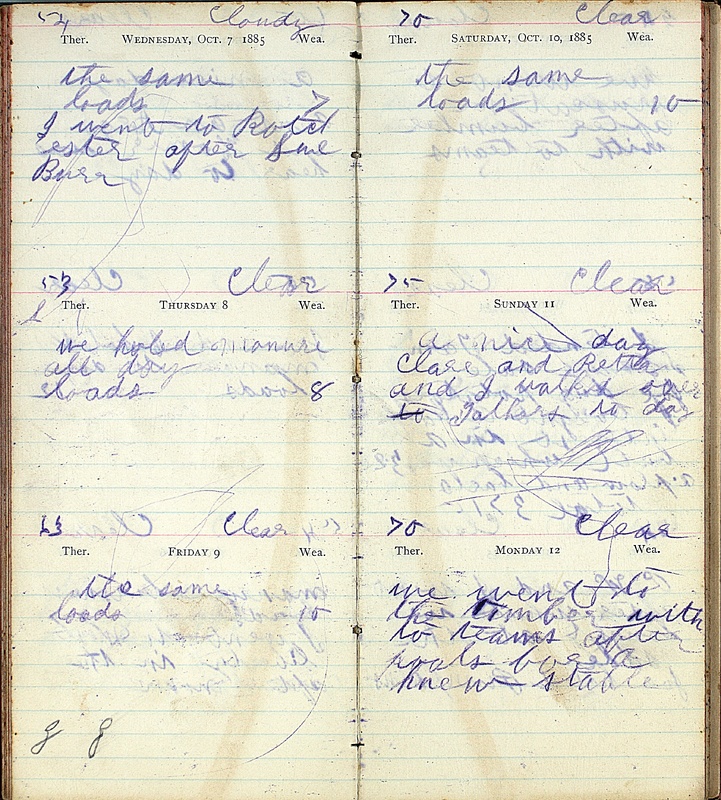 54 Cloudy
Ther. WEDNESDAY, OCT. 7 1885 Wea.
the same
loads 7
I went to Rotch
ester after Sue
Burr
53 Clear
Ther. THURSDAY 8 Wea.
we holed manure
all day
loads 8
53 Clear
Ther. FRIDAY 9 Wea.
the same
loads 10
g g
70 Clear
Ther. SATURDAY, OCT. 10, 1885 Wea.
the same
loads 10
75 Clear
Ther. SUNDAY 11 Wea.
a nice day
Clare and Retta
and I walked over
to Fathers to day
70 Clear
Ther. MONDAY 12 Wea.
we went to
the with
to teams after
for a
knew stable